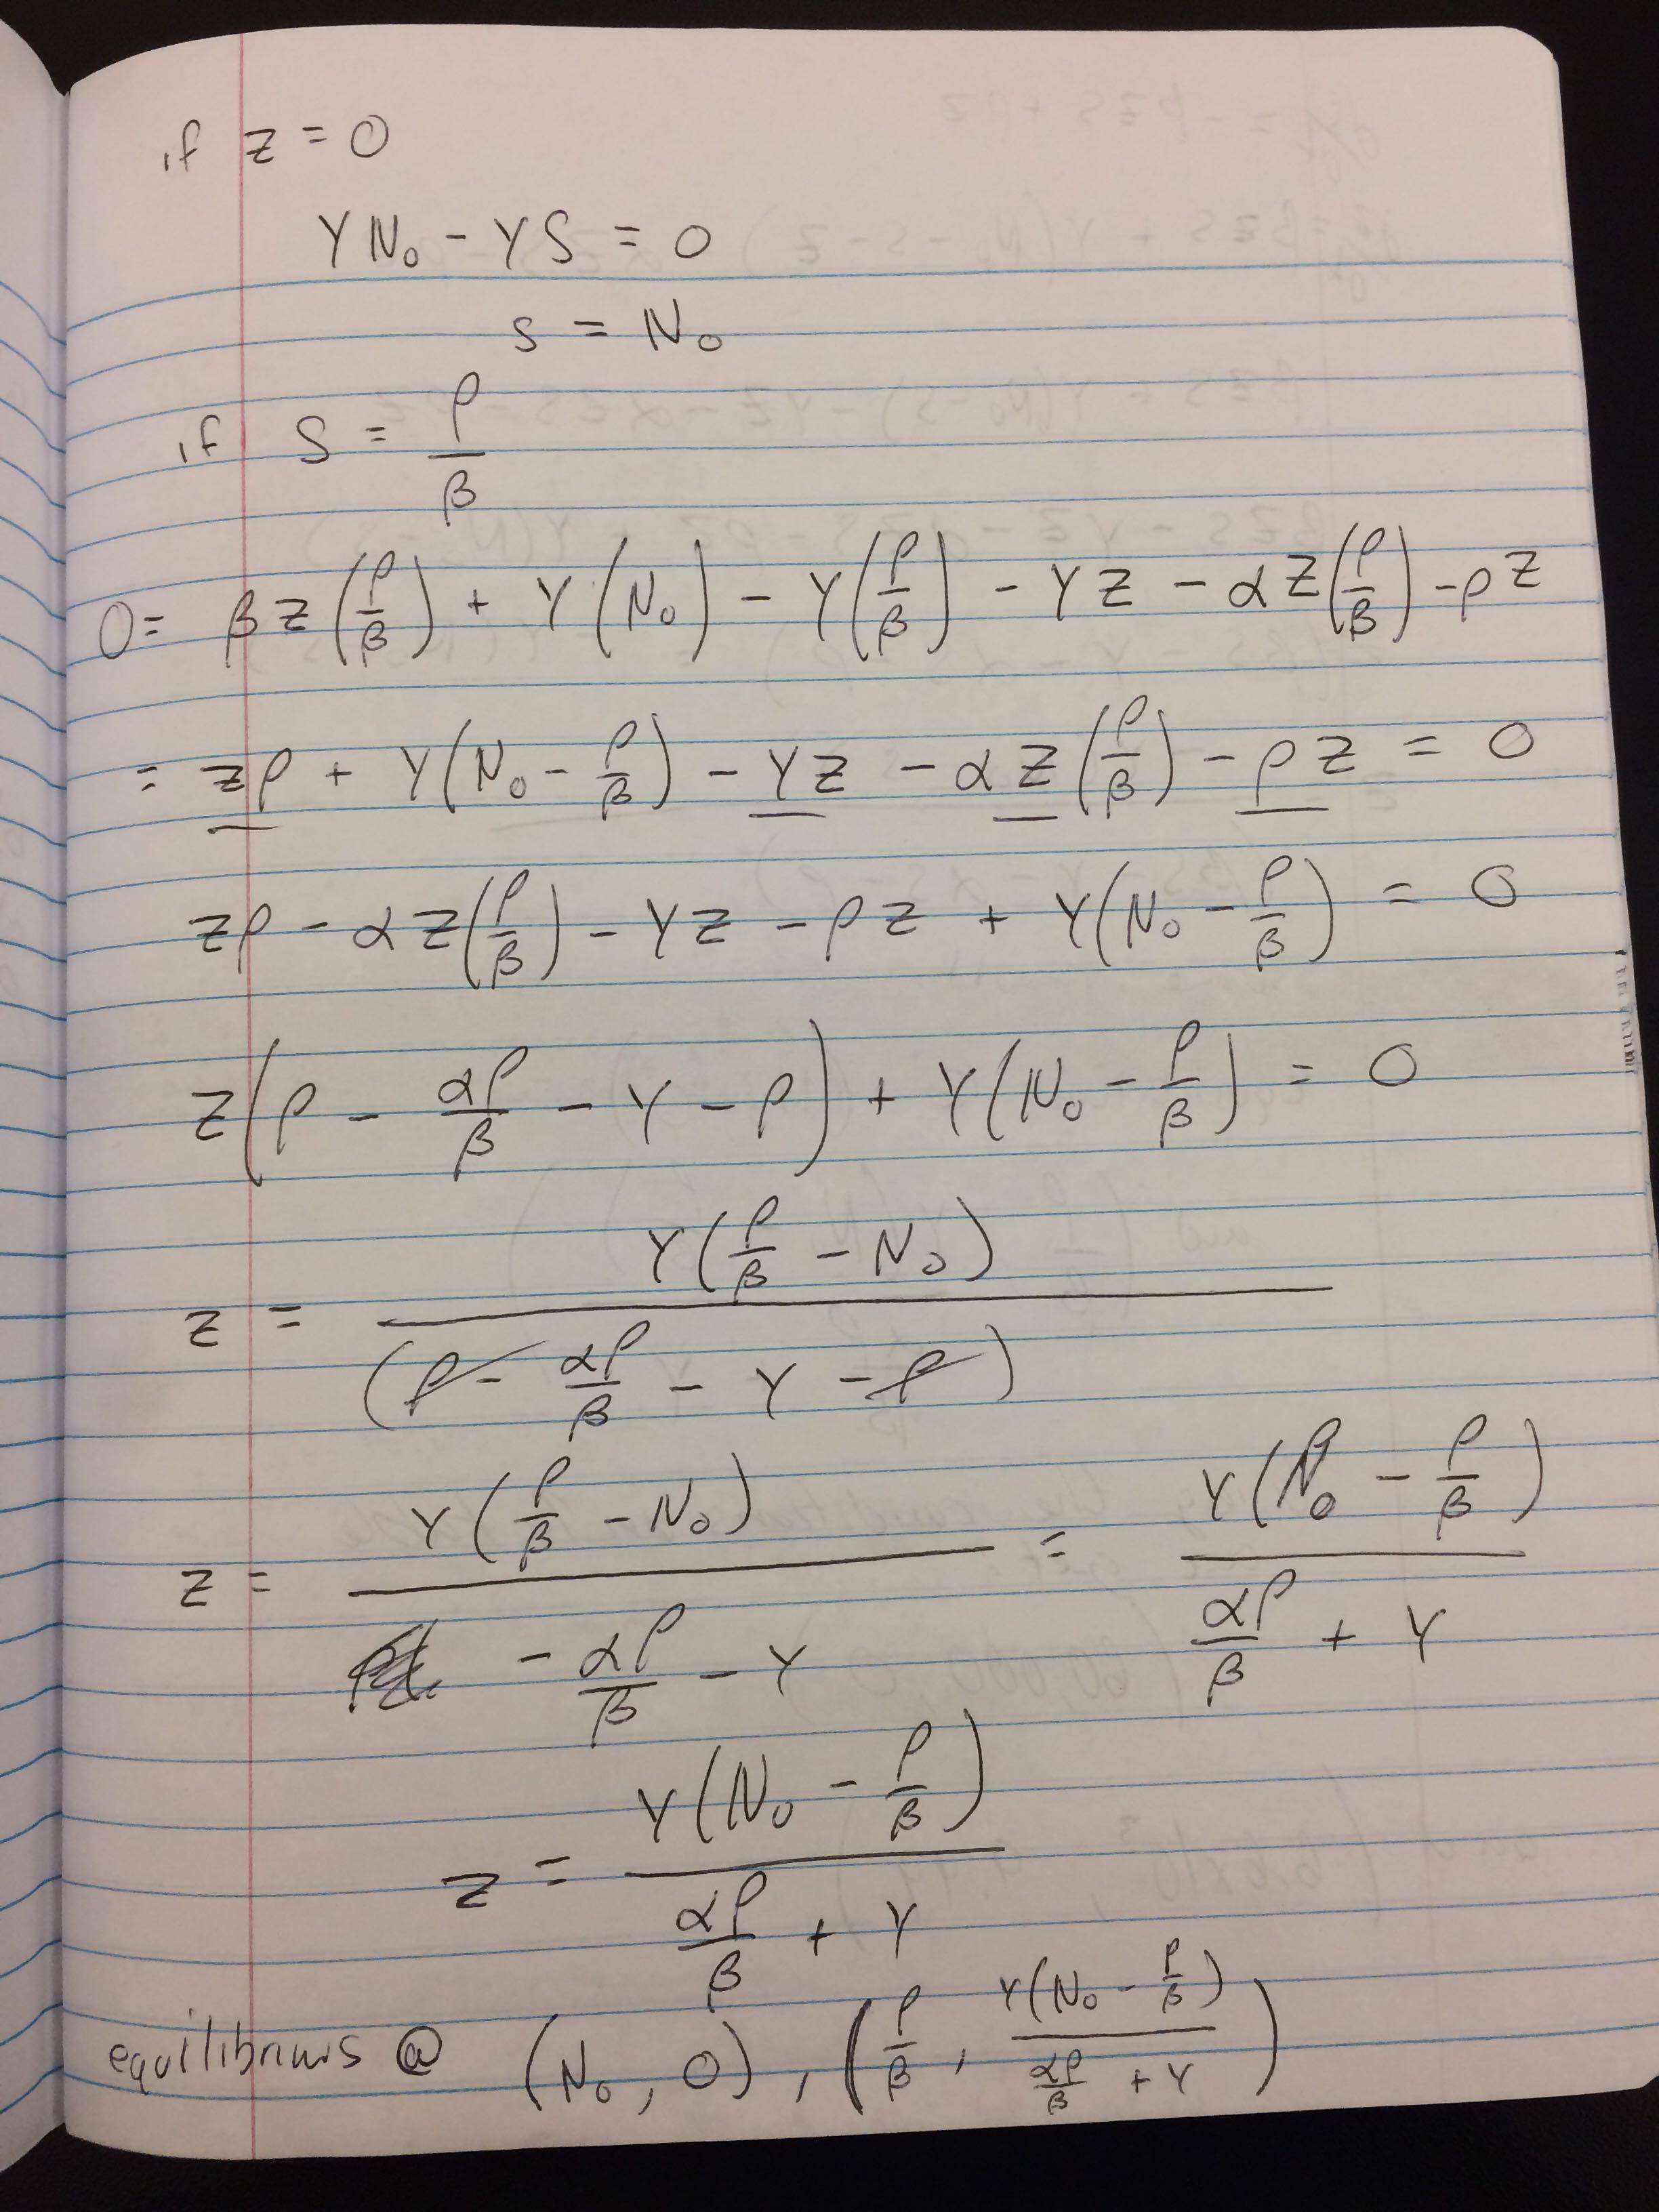 if z = 0
γN₀ - γS = 0
S = N₀
if S = ρ/β
0 = βz(ρ/β) + γ(N₀) - γ(ρ/β) - γz - αz(ρ/β) - ρz
= zρ + γ(N₀ - ρ/β) - γz - αz(ρ/β) - ρz = 0
zρ - αz(ρ/β) - γz - ρz + γ(N₀ - ρ/β) = 0
z(ρ - αρ/β - γ - ρ) + γ(N₀ - ρ/β) = 0
z = γ(ρ/β - N₀) / (ρ - αρ/β - γ - ρ)
z = γ(ρ/β - N₀) / - αρ/β - γ = γ(N₀ - ρ/β) / αρ/β + γ
z = γ(N₀ - ρ/β) / αρ/β + γ
equilibriums @ (N₀, 0), (ρ/β, γ(N₀ - ρ/β) / αρ/β + γ)